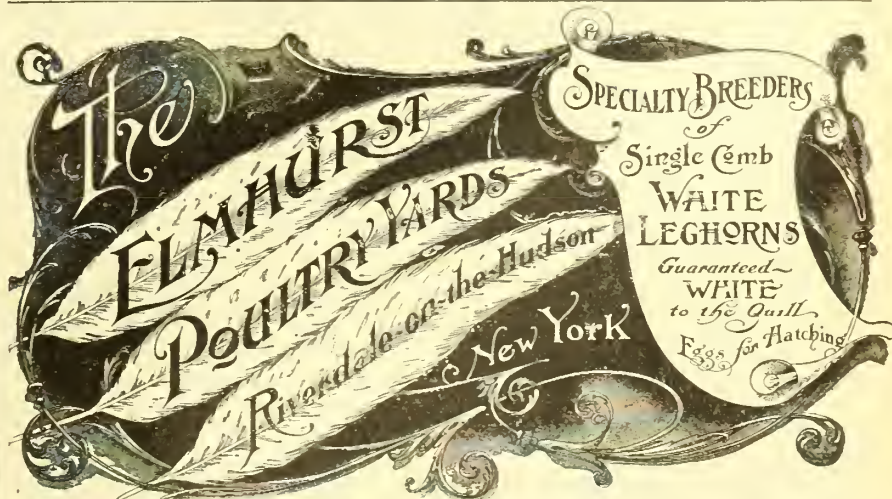 The
ELMHURST
POULTRY YARDS
Riverdale-on-the-Hudson
New York
SPECIALTY BREEDERS
of
Single Comb
WHITE
LEGHORNS
Guaranteed~
WHITE
to the Quill
Eggs for Hatching